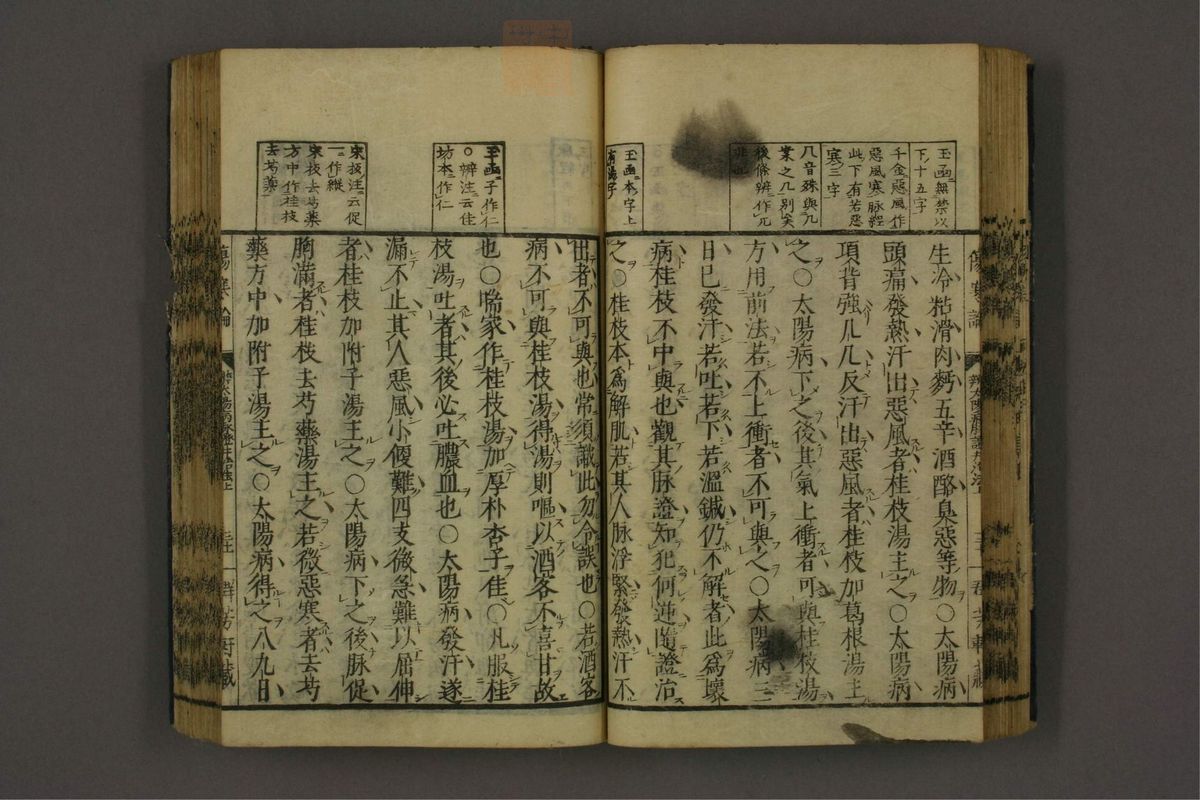 玉函無禁以
下十五字
千金惡風作
惡風寒脉經
此下有若惡
寒三字
几音殊與几
案之几別矣
後條辨作兀
非也
玉函本字上
有湯字
生冷粘滑肉麪五辛酒酪臭惡等物○太陽病
頭痛發熱汗出惡風者桂枝湯主之○太陽病
項背強几几反汗出惡風者桂枝加葛根湯主
之○太陽病下之後其氣上衝者可與桂枝湯
方用前法若不上衝者不可與之○太陽病三
日已發汗若吐若下若溫鍼仍不解者此爲壞
病桂枝不中與也觀其脉證知犯何逆隨證治
之○桂枝本爲解肌若其人脉浮緊發熱汗不
玉函子作仁
○辨注云佳
坊本作仁
宋板注云促
一作縱
宋板去芍藥
方中作桂枝
去芍藥
出者不可與也常須識此勿令誤也○若酒客
病不可與桂枝湯得湯則嘔以酒客不喜甘故
也○喘家作桂枝湯加厚朴杏子佳○凡服桂
枝湯吐者其後必吐膿血也○太陽病發汗遂
漏不止其人惡風小便難四支微急難以屈伸
者桂枝加附子湯主之○太陽病下之後脉促
胸滿者桂枝去芍藥湯主之若微惡寒者去芍
藥方中加附子湯主之○太陽病得之八九日